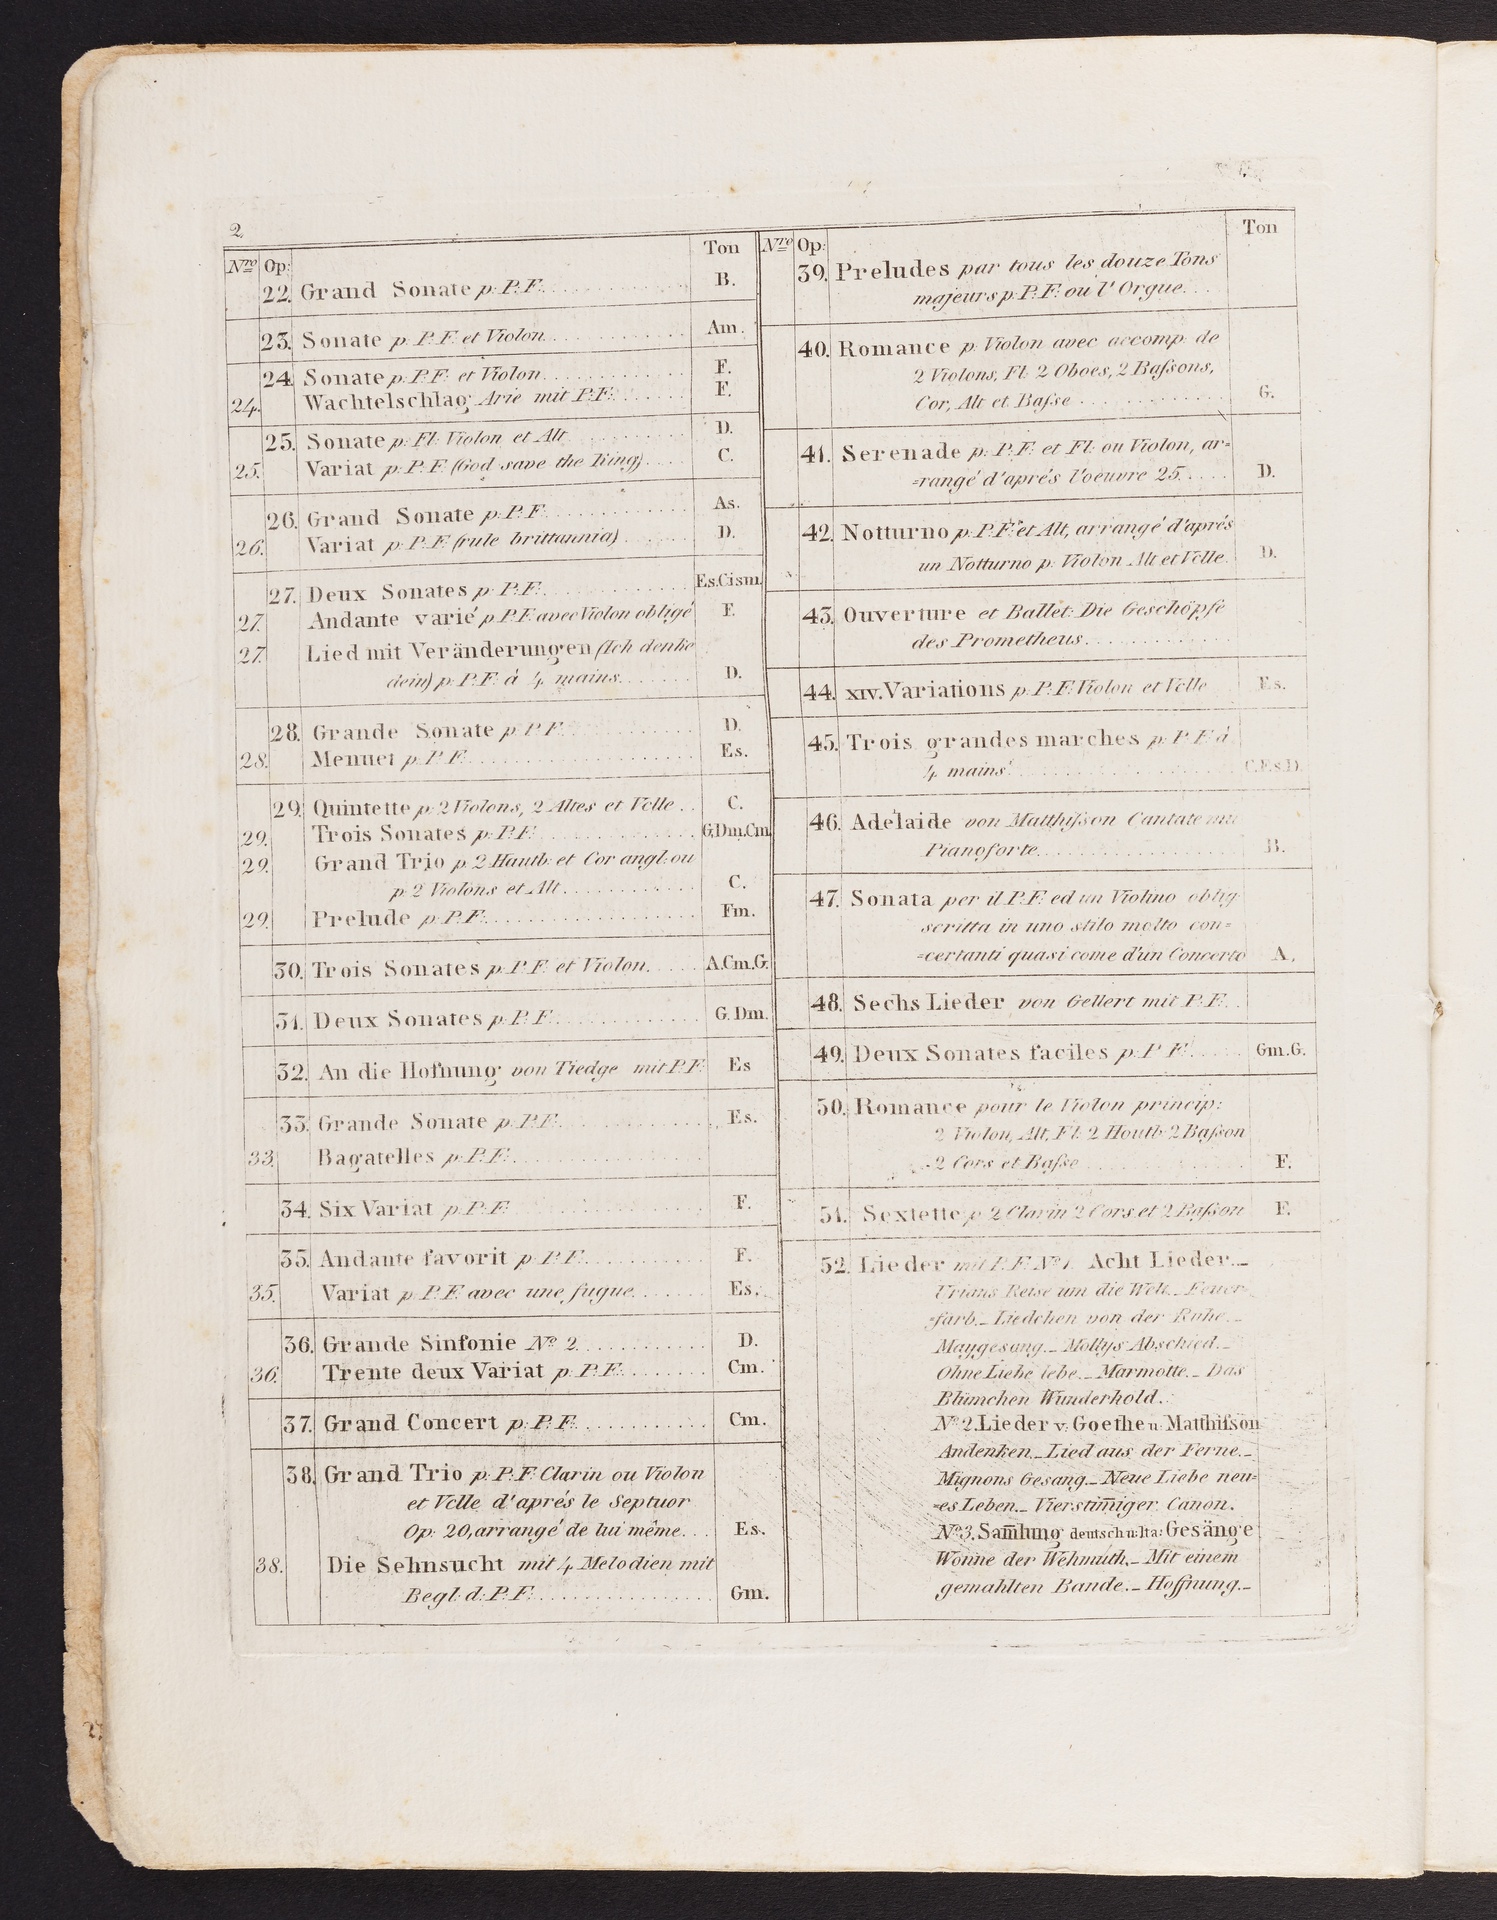 2
Nro Op: Ton
22. Grand Sonate p. P.F. B.
23. Sonate p. P.F. et Violon Am.
24. Sonate p. P.F. et Violon F.
24. Wachtelschlag Arie mit P.F. F.
25. Sonate p. Fl. Violon et Alt D.
25. Variat p. P.F. (God save the King) C.
26. Grand Sonate p. P.F. As.
26. Variat p. P.F. (rule brittannia) D.
27. Deux Sonates p. P.F. Es.Cism.
27. Andante varié p. P.F. avec Violon obligé F.
27. Lied mit Veränderungen (Ich denke
dein) p. P.F. à 4 mains D.
28. Grande Sonate p. P.F. D.
28. Menuet p. P.F. Es.
29. Quintette p. 2 Violons, 2 Altes et Vclle C.
29. Trois Sonates p. P.F. G.Dm.Cm
29. Grand Trio p. 2 Hautb: et Cor angl: ou
p. 2 Violons et Alt C.
29. Prelude p. P.F. Fm.
30. Trois Sonates p. P.F. et Violon. A.Cm.G.
31. Deux Sonates p. P.F. G.Dm.
32. An die Hofnung von Tiedge mit P.F. Es
33. Grande Sonate p. P.F. Es.
33. Bagatelles p. P.F.
34. Six Variat p. P.F. F.
35. Andante favorit p. P.F. F.
35. Variat p. P.F. avec une fugue Es.
36. Grande Sinfonie No 2. D.
36. Trente deux Variat p. P.F. Cm.
37. Grand Concert p. P.F. Cm.
38. Grand Trio p. P.F. Clarin ou Violon
et Vclle d'aprés le Septuor
Op: 20, arrangé de lui même Es.
38. Die Sehnsucht mit 4 Melodien mit
Begl: d: P.F. Gm.
Nro Op: Ton
39. Preludes par tous les douze Tons
majeurs p. P.F. ou l'Orgue.
40. Romance p. Violon avec accomp: de
2 Violons, Fl. 2 Oboes, 2 Baſsons,
Cor, Alt et Baſse G.
41. Serenade p. P.F. et Fl: ou Violon, ar=
=rangé d'aprés l'oeuvre 25. D.
42. Notturno p. P.F. et Alt, arrangé d'aprés
un Notturno p. Violon Alt et Vclle. D.
43. Ouverture et Ballet: Die Geschöpfe
des Prometheus.
44. XIV. Variations p. P.F. Violon et Vclle Es.
45. Trois grandes marches p. P.F. à
4 mains C.Es.D.
46. Adelaide von Matthiſson Cantate mit
Pianoforte. B.
47. Sonata per il P.F. ed un Violino oblig
scritta in uno stilo molto con=
=certanti quasi come d'un Concerto A.
48. Sechs Lieder von Gellert mit P.F.
49. Deux Sonates faciles p. P.F. Gm.G.
50. Romance pour le Violon princip:
2 Violon, Alt, Fl. 2 Houtb. 2 Baſson
2 Cors et Baſse F.
51. Sextette p. 2 Clarin 2 Cors et 2 Baſson E.
52. Lieder mit P.F. No 1. Acht Lieder._
Urians Reise um die Welt._ Feuer
=farb._ Liedchen von der Ruhe._
Maygesang._ Mollys Abschied._
Ohne Liebe lebe._ Marmotte._ Das
Blümchen Wunderhold.
No 2. Lieder v. Goethe u. Matthiſson
Andenken._ Lied aus der Ferne._
Mignons Gesang._ Neue Liebe neu=
=es Leben._ Vierstim̄iger Canon.
No 3. Sam̄lung deutsch u: Ita: Gesänge
Wonne der Wehmuth._ Mit einem
gemahlten Bande._ Hoffnung._